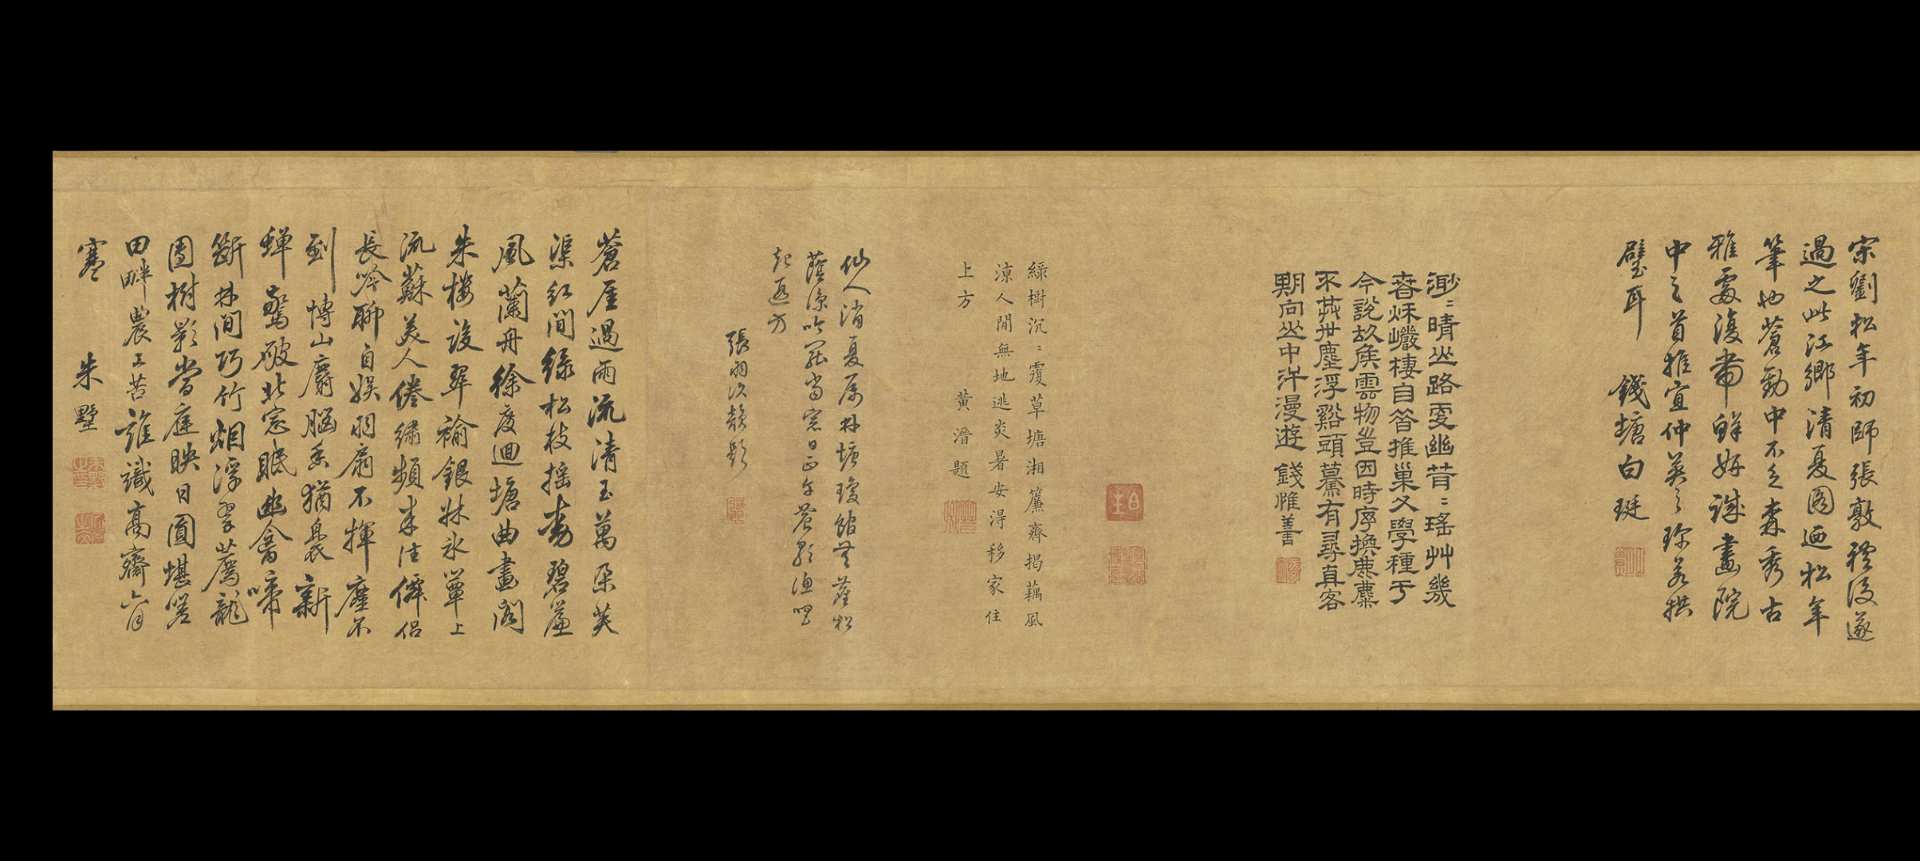 宋劉松年初師張敦禮後遂
過之此江鄉清夏圖迺松年
筆也蒼勁中不乏森秀古
雅處復帶鮮妍誠畫院
中之首推宣仲美之珍若拱
璧耳 錢塘白珽
渺〻晴山路更幽昔〻瑤艸幾
春秌巖棲自昔推巢父學種于
今說故矦雲物豈因時序換麋
不共世塵浮谿頭驀有尋真客
期向山中汗漫遊 錢惟善
綠樹沉〻覆草塘湘簾齊揭藕風
涼人間無地逃炎暑安得移家住
上方 黄溍題
仙人消夏屬林塘瓊館
蔭涼吟罷
張羽次韻題
蒼厓過雨流清玉萬朵芙
渠紅間綠松枝搖動碧簾
風蘭舟徐度迴塘曲畫閣
朱樓設翠褕銀牀冰簟上
流蘇美人倦繡頻來往僻侶
長吟聊自娛羽扇不揮塵不
到博山麝腦香猶裊新
蟬驚破北窓眠幽禽啼
斷林間巧竹烟浮翠薦龍
團樹影當庭映日圓堪笑
田畔農工苦誰識高齋六月
寒 朱墅